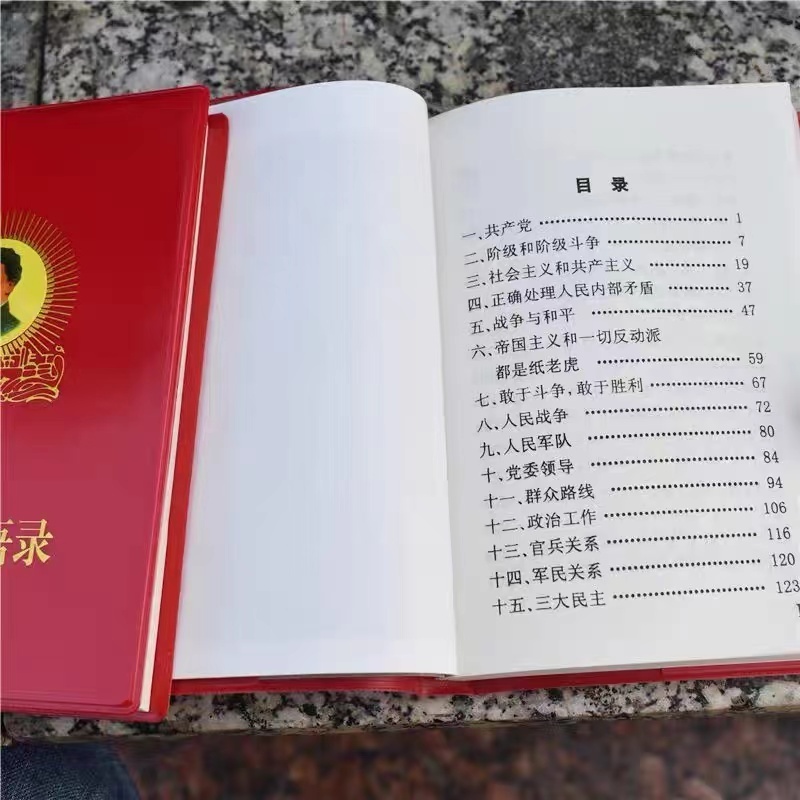 语录
目 录
一、共产党 …… 1
二、阶级和阶级斗争 …… 7
三、社会主义和共产主义 …… 19
四、正确处理人民内部矛盾 …… 37
五、战争与和平 …… 47
六、帝国主义和一切反动派
都是纸老虎 …… 59
七、敢于斗争,敢于胜利 …… 67
八、人民战争 …… 72
九、人民军队 …… 80
十、党委领导 …… 84
十一、群众路线 …… 94
十二、政治工作 …… 106
十三、官兵关系 …… 116
十四、军民关系 …… 120
十五、三大民主 …… 123